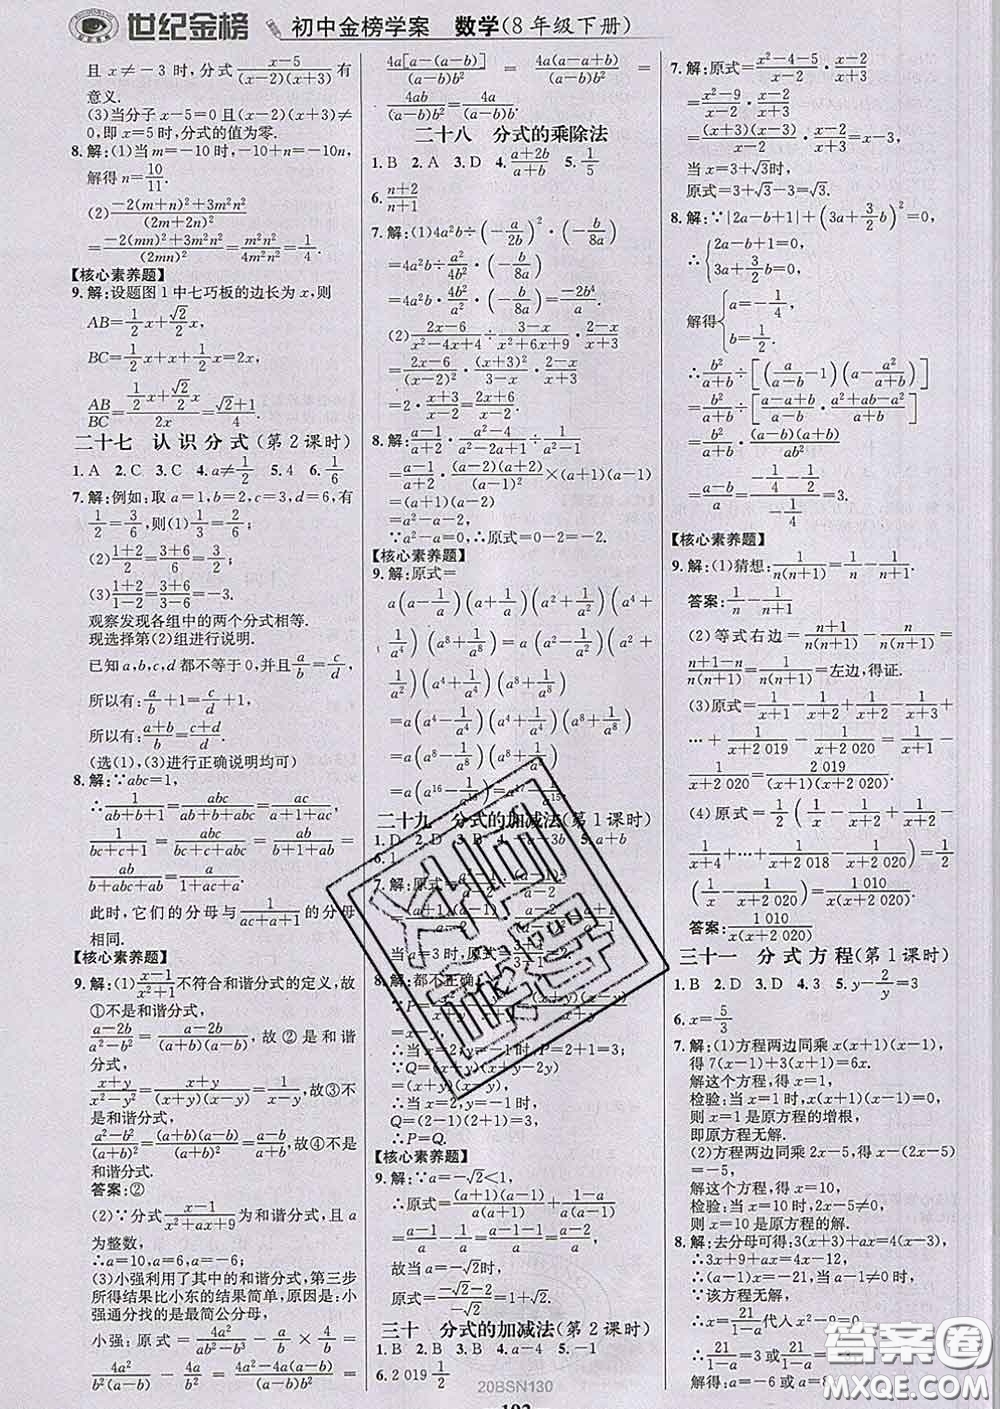 世纪金榜 初中金榜学案 数学(8年级下册)
且 x≠-3 时,分式 (x-5)/((x-2)(x+3)) 有
意义.
(3)当分子 x-5=0 且(x-2)(x+3)≠
0,即 x=5 时,分式的值为零.
8. 解:(1)当 m=-10 时,-10+n=-10n,
解得 n=10/11.
(2) (-2(m+n)+3m²n²)/(2m+2n)²
=(-2(mn)²+3m²n²)/(2mn)²=m²n²/4m²n²=1/4.
【核心素养题】
9. 解:设题图 1 中七巧板的边长为 x,则
AB=1/2 x+√2/2 x,
BC=1/2 x+x+1/2 x=2x,
AB/BC=(1/2 x+√2/2 x)/2x=(√2+1)/4.
二十七 认识分式(第2课时)
1. A 2. C 3. C 4. a≠1/2 5. 4 6. 1/6
7. 解:例如:取 a=1,b=2,c=3,d=6,有
1/2=3/6,则(1)1/3=2/6;
(2)(1+2)/2=(3+6)/6=3/2;
(3)(1+2)/(1-2)=(3+6)/(3-6)=-3.
观察发现各组中的两个分式相等.
现选择第(2)组进行说明.
已知 a,b,c,d 都不等于0,并且 a/b=c/d,
所以有:a/b+1=c/d+1,
所以有:(a+b)/b=(c+d)/d.
(选(1),(3)进行正确说明均可)
8. 解:∵abc=1,
∴1/(ab+b+1)=abc/(ab+b+abc)=ac/(a+1+ac),
1/(bc+c+1)=abc/(bc+c+abc)=ab/(b+1+ab)
=a/(1+ac+a).
此时,它们的分母与 1/(ac+a+1) 的分母
相同.
【核心素养题】
9. 解:(1)(x-1)/(x²+1) 不符合和谐分式的定义,故
①不是和谐分式,
(a-2b)/(a²-b²)=(a-2b)/((a+b)(a-b)),故②是和谐
分式,
(x+y)/(x²-y²)=(x+y)/((x+y)(x-y))=1/(x-y),故③不
是和谐分式,
(a²-b²)/(a+b)²=((a+b)(a-b))/(a+b)²=(a-b)/(a+b),故④不是
和谐分式.
答案:②
(2)∵分式 (x-1)/(x²+ax+9) 为和谐分式,且 a
为整数,
∴a=10,a=6,a=-6.
(3)小强利用了其中的和谐分式,第三步
所得结果比小东的结果简单,原因是:小
强通分找的是最简公分母,
小强:原式=4a²/(ab²-b³)-a/b×4/b=
4a²/(ab²-b³)-4a/b²=4a²/((a-b)b²)-4a(a-b)/((a-b)b²)=
4a[a-(a-b)]/((a-b)b²)=4a(a-a+b)/((a-b)b²)=
4ab/((a-b)b²)=4a/((a-b)b).
二十八 分式的乘除法
1. B 2. A 3. D 4. (a+2b)/(a+b) 5. 1/5
6. (n+2)/(n+1)
7. 解:(1)4a²b÷(-a/2b)²·(-b/8a)
=4a²b÷a²/4b²·(-b/8a)
=4a²b·4b²/a²·(-b/8a)=-2b⁴/a.
(2)(2x-6)/(x²-4x+4)÷(x-3)/(x²+6x+9)·(2-x)/(x+3)
=(2x-6)/(x-2)²·(x+3)²/(3-x)·(x-2)/(x+3)
=2·(x+3)/(x-2)=(2x+3)/(x-2).
8. 解:(a-1)/(a+1)·(a²-4)/(a²-2a+1)÷1/(a²-1)
=(a-1)/(a+1)·((a-2)(a+2))/(a-1)²×(a+1)(a-1)
=(a+1)(a-2)
=a²-a-2,
∵a²-a=0,∴原式=0-2=-2.
【核心素养题】
9. 解:原式=
a(a-1/a)(a+1/a)(a²+1/a²)(a⁴+
1/a⁴)(a⁸+1/a⁸)=a(a²-1/a²)(a²+
1/a²)(a⁴+1/a⁴)(a⁸+1/a⁸)
=a(a⁴-1/a⁴)(a⁴+1/a⁴)(a⁸+1/a⁸)
=a(a⁸-1/a⁸)(a⁸+1/a⁸)
=a(a¹⁶-1/a¹⁶)
二十九 分式的加减法(第1课时)
1. D 2. D 3. B 5. a+b
6. 1
7. 解:原式=
当 a=3 时,原式
8. 解:都不正确.
∴当 x=2,y=-1时,P=2-(-1)=3.
∵Q=(x-y)(x+y),
∴当 x=2,y=-1时,
Q=(2-1)(2+1)=3,
∴P=Q.
【核心素养题】
9. 解:∵a=-√2<1,
∴原式=((a+1)(a-1))/(a(a+1))+(1-a)/a
=(a-1)/a-(a-1)/a
故当 a=-√2时,
原式=(-√2-1)/-√2=1+√2.
三十 分式的加减法(第2课时)
1. B 2. B 3. A 4. -5 5. -1
6. 2 019 1/2
7. 解:原式=(x²-4-5)/(x-2)·(x-2)/(x+3)
=(x²-9)/(x-2)·(x-2)/(x+3)
=((x+3)(x-3))/(x-2)·(x-2)/(x+3)=x-3,
当 x=3+√3时,
原式=3+√3-3=√3.
8. 解:∵|2a-b+1|+(3a+3/2 b)²=0,
∴{2a-b+1=0, 3a+3/2 b=0,
解得{a=-1/4, b=1/2.
∴b²/(a+b)÷[(a/(a-b)-1)(a-a²/(a+b))]
=b²/(a+b)÷[(a-a+b)/(a-b)·(a²+ab-a²)/(a+b)]
=b²/(a+b)·((a-b)(a+b))/ab²
=(a-b)/a=(-1/4-1/2)/(-1/4)=3.
【核心素养题】
9. 解:(1)猜想:1/(n(n+1))=1/n-1/(n+1).
答案:1/n-1/(n+1)
(2)等式右边=(n+1)/(n(n+1))-n/(n(n+1))=
(n+1-n)/(n(n+1))=1/(n(n+1))=左边,得证.
(3)原式=1/x-1/(x+1)+1/(x+1)-1/(x+2)+1/(x+2)-1/(x+3)+
…+1/(x+2 019)-1/(x+2 020)=
1/x-1/(x+2 020)=2 019/(x(x+2 020)).
(4)原式=1/2(1/x-1/(x+2)+1/(x+2)-
1/(x+4)+…+1/(x+2 018)-1/(x+2 020))=1/2
(1/x-1/(x+2 020))=1 010/(x(x+2 020)).
答案:1 010/(x(x+2 020))
三十一 分式方程(第1课时)
1. B 2. D 3. D 4. 3 5. y-2/y=3
6. x=5/3
7. 解:(1)方程两边同乘 x(x+1)(x-1),
得 7(x-1)+3(x+1)=6x.
解这个方程,得 x=1,
检验:当 x=1时,x(x+1)(x-1)=0,
则 x=1 是原方程的增根,
即原方程无解.
(2)方程两边同乘(x-5),得 x-2(x-5)
=-5,
解这个方程,得 x=10,
检验:当 x=10时,x-5≠0,
则 x=10 是原方程的解.
8. 解:去分母可得:3(x+3)+ax=4(x-3),
∴3x+9+ax=4x-12,
∴(a-1)x=-21,当 a=1时,
∵该方程无解,
∴x=21/(1-a),代入 x²-9=0,
∴21/(1-a)=3或21/(1-a)=-3,
20BSN130
193
答案圈
MXQE.COM